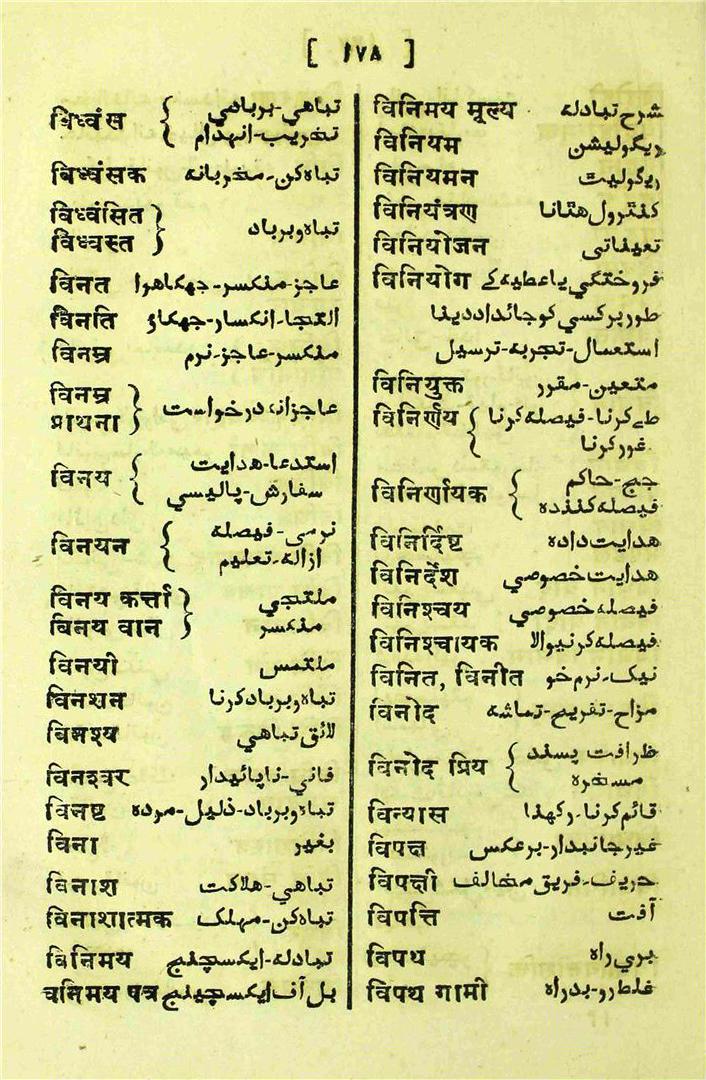 [ ۱۷۸ ]
विध्वंस { تباهی-بربادی
تخریب-انہدام
बिध्वंसक تباہ کن-مخربانہ
विध्वंसित }
विध्वस्त } تباہ و برباد
विनत عاجز-منکسر-جھکا ہوا
विनति التجا-انکسار-جھکاؤ
विनम्र منکسر-عاجز-نرم
विनम्र }
प्राथना } عاجزانہ درخواست
विनय { استدعا-ہدایت
سفارش-پالیسی
विनयन { نرمی-فیصلہ
ازالہ-تعلیم
विनय कर्त्ता } ملتجی
बिनय वान } منکسر
विनयी ملتمس
बिनशन تباہ و برباد کرنا
विनश्य لائق تباھی
विनश्वर فانی-ناپائیدار
विनष्ट تباہ و برباد-ذلیل-مردہ
बिना بغیر
विनाश تباھی-ھلاکت
विनाशात्मक تباہ کن-مہلک
विनिमय تبادلہ-ایکسچینج
वनिमय पत्र بل آف ایکسچینج
विनिमय मूल्य شرح تبادلہ
विनियम ریگولیشن
विनियमन ریگولیٹ
विनियंत्रण کنٹرول ھٹانا
विनियोजन تعیناتی
विनियोग فروختگی یا عطیہ کے
طور پر کسی کو جائداد دینا
استعمال-تجربہ-ترسیل
विनियुक्त متعین-مقرر
विनिर्णय { طے کرنا-فیصلہ کرنا
غور کرنا
विनिर्णायक { جج-حاکم
فیصلہ کنندہ
विनिर्दिष्ट ھدایت دادہ
विनिर्देश ھدایت خصوصی
विनिश्चय فیصلہ خصوصی
विनिश्चायक فیصلہ کرنیوالا
विनित, विनीत نیک-نرم خو
विनोद مزاح-تفریح-تماشہ
विनोद प्रिय { ظرافت پسند
مسخرہ
विन्यास قائم کرنا-رکھنا
विपक्ष غیر جانبدار-برعکس
विपक्षी حریف-فریق مخالف
विपत्ति آفت
विपथ بری راہ
विपथ गामी غلط رو-بد راہ